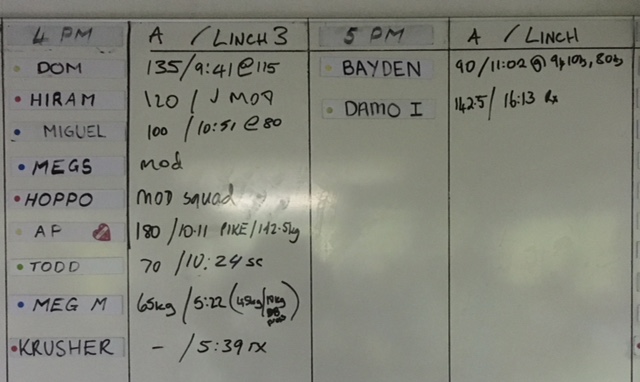 4 PM A / LINCH 3 5 PM A / LINCH
DOM 135/9:41@115 BAYDEN 90/11:02 @
HIRAM 120 / MOD DAMO I 142.5/ 16:13 Rx
MIGUEL 100 /10:51 @80
MEGS mod
HOPPO MOD squad
AP 180 /10:11 PIKE/142.5kg
TODD 70 /10:24 sc
MEG M 65kg / 5:22 (45kg/10kg DB
KRUSHER - / 5:39 rx